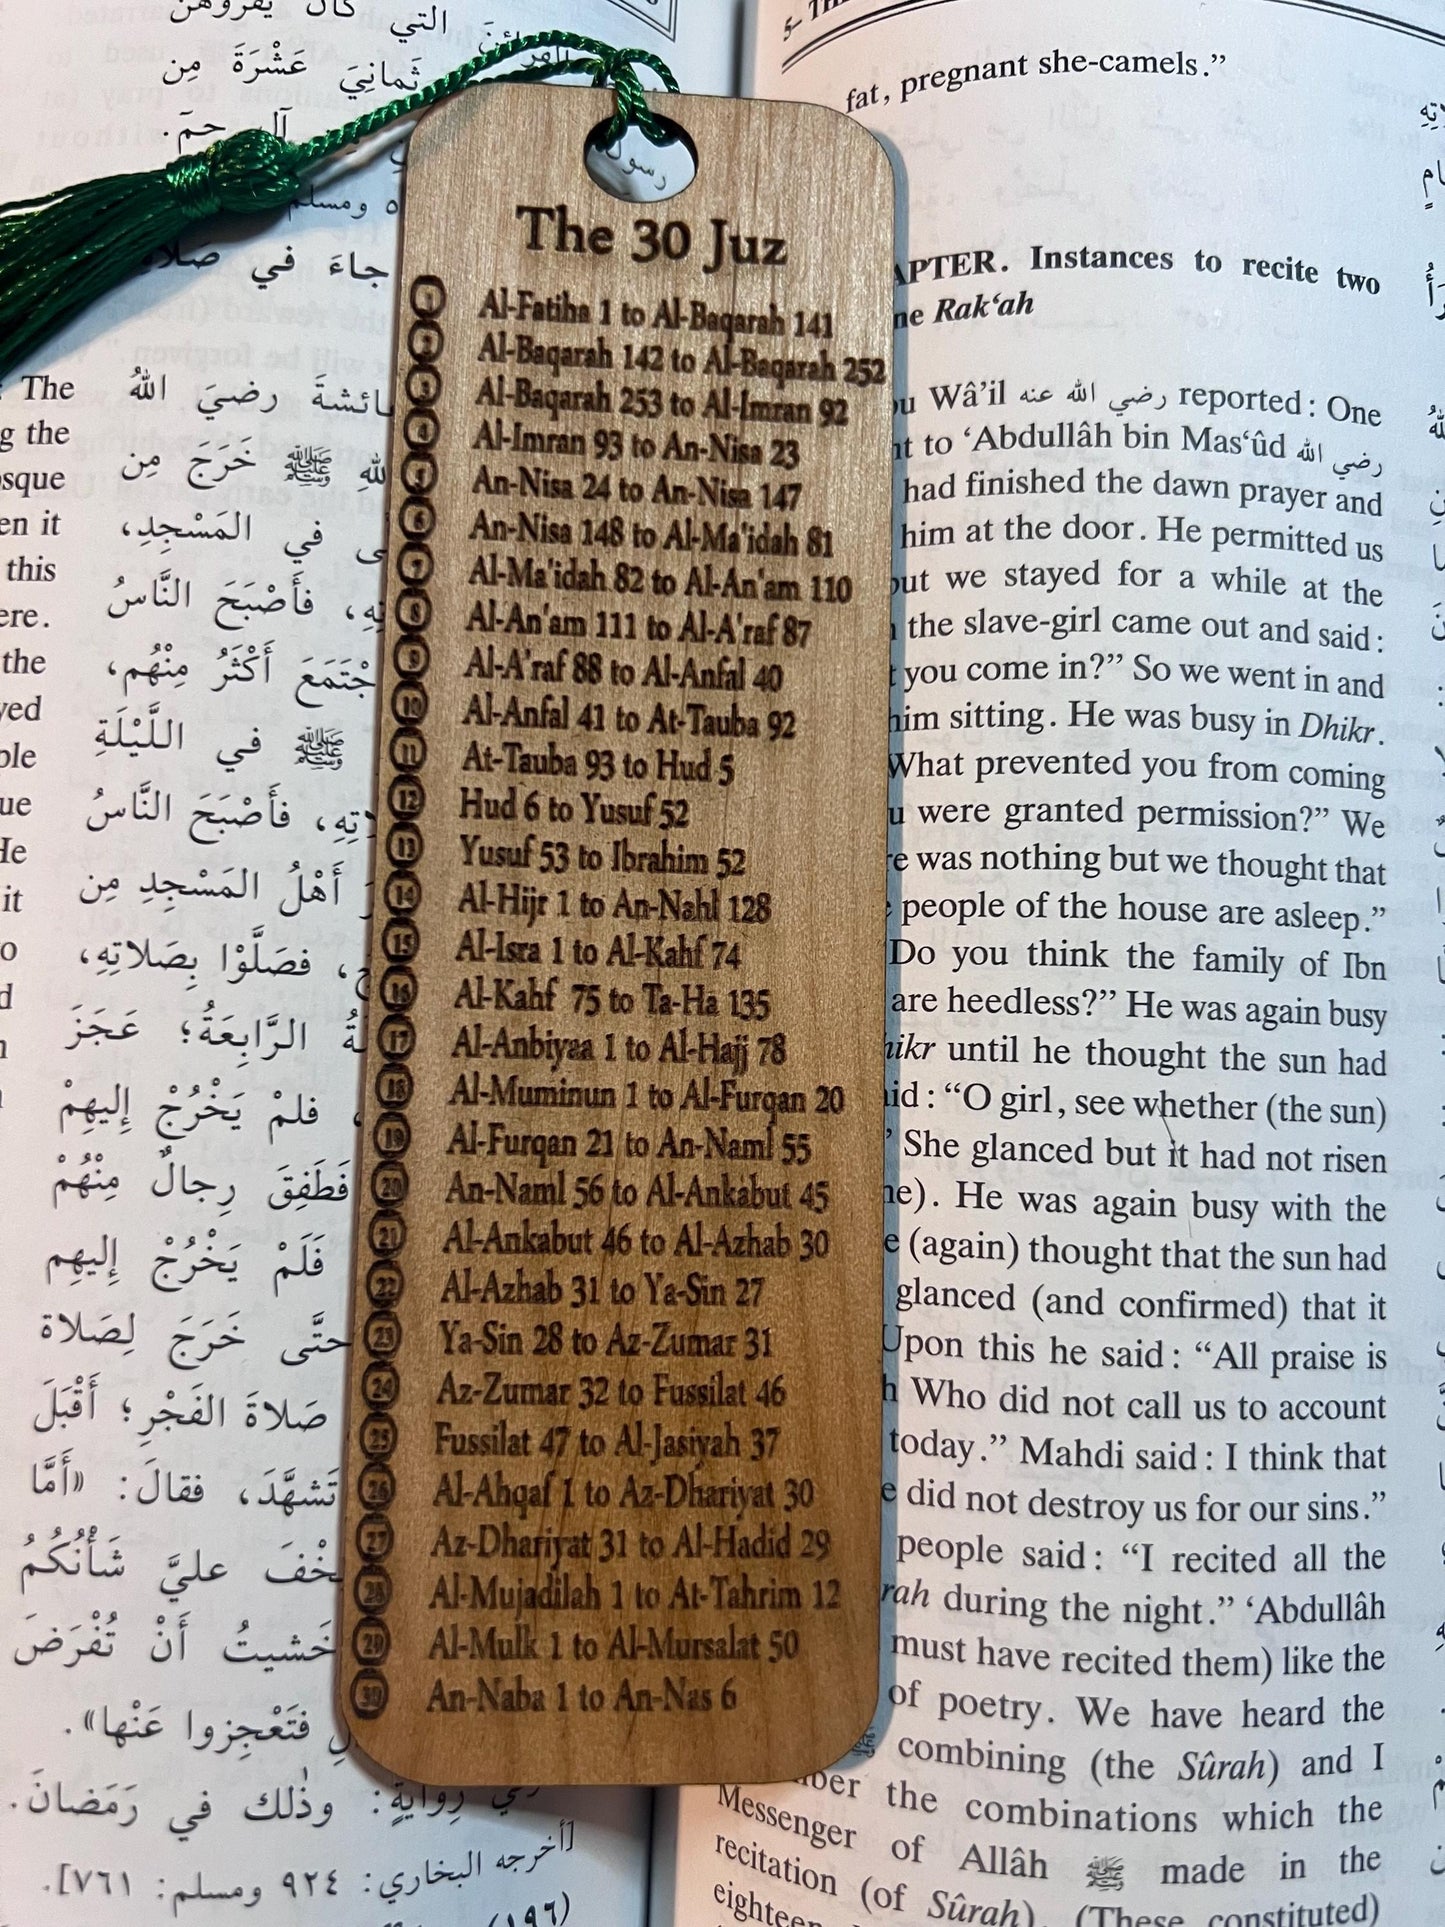 The 30 Juz
1 Al-Fatiha 1 to Al-Baqarah 141
2 Al-Baqarah 142 to Al-Baqarah 252
3 Al-Baqarah 253 to Al-Imran 92
4 Al-Imran 93 to An-Nisa 23
5 An-Nisa 24 to An-Nisa 147
6 An-Nisa 148 to Al-Ma'idah 81
7 Al-Ma'idah 82 to Al-An'am 110
8 Al-An'am 111 to Al-A'raf 87
9 Al-A'raf 88 to Al-Anfal 40
10 Al-Anfal 41 to At-Tauba 92
11 At-Tauba 93 to Hud 5
12 Hud 6 to Yusuf 52
13 Yusuf 53 to Ibrahim 52
14 Al-Hijr 1 to An-Nahl 128
15 Al-Isra 1 to Al-Kahf 74
16 Al-Kahf 75 to Ta-Ha 135
17 Al-Anbiyaa 1 to Al-Hajj 78
18 Al-Muminun 1 to Al-Furqan 20
19 Al-Furqan 21 to An-Naml 55
20 An-Naml 56 to Al-Ankabut 45
21 Al-Ankabut 46 to Al-Azhab 30
22 Al-Azhab 31 to Ya-Sin 27
23 Ya-Sin 28 to Az-Zumar 31
24 Az-Zumar 32 to Fussilat 46
25 Fussilat 47 to Al-Jasiyah 37
26 Al-Ahqaf 1 to Az-Dhariyat 30
27 Az-Dhariyat 31 to Al-Hadid 29
28 Al-Mujadilah 1 to At-Tahrim 12
29 Al-Mulk 1 to Al-Mursalat 50
30 An-Naba 1 to An-Nas 6
The
the
this
the
it
التي كان
ثَمانِيَ عَشْرَةَ مِن
آلِ حمَ.
ومسلم
جاءَ في
رضيَ اللهُ
ﷺ خَرَجَ مِن
في المَسْجِدِ،
فَأَصْبَحَ النَّاسُ
أَكْثَرُ مِنْهُم،
ﷺ في اللَّيْلَةِ
فأَصْبَحَ النَّاسُ
أَهْلُ المَسْجِدِ مِن
فصَلَّوْا بِصَلاتِهِ،
الرَّابِعَةُ؛ عَجَزَ
فلمْ يَخْرُجْ إِليهِمْ
فَطَفِقَ رِجالٌ مِنْهُمْ
فَلَمْ يَخْرُجْ إِليهِم
حتَّى خَرَجَ لِصَلاة
صَلاةَ الفَجْرِ؛ أَقْبَلَ
تَشهَّدَ، فقالَ: «أَمَّا
عليَّ شَأْنُكُمُ
خَشيتُ أَنْ تُفْرَضَ
فتَعْجِزوا عَنْها».
رِوايةٍ: وذٰلك في رَمَضانَ.
[أخرجه البخاري: ٩٢٤ ومسلم: ٧٦١].
رسول
fat, pregnant she-camels.”
Instances to recite two
Rak‘ah
Wâ’il رضي الله عنه reported: One
to ‘Abdullâh bin Mas‘ûd رضي الله
had finished the dawn prayer and
him at the door. He permitted us
we stayed for a while at the
the slave-girl came out and said:
you come in?” So we went in and
sitting. He was busy in Dhikr.
What prevented you from coming
were granted permission?” We
was nothing but we thought that
people of the house are asleep.”
Do you think the family of Ibn
are heedless?” He was again busy
until he thought the sun had
“O girl, see whether (the sun)
She glanced but it had not risen
He was again busy with the
(again) thought that the sun had
glanced (and confirmed) that it
Upon this he said: “All praise is
Who did not call us to account
today.” Mahdi said: I think that
did not destroy us for our sins.”
people said: “I recited all the
during the night.” ‘Abdullâh
must have recited them) like the
of poetry. We have heard the
combining (the Sûrah) and I
the combinations which the
Messenger of Allâh ﷺ made in the
recitation (of Sûrah). (These constituted)